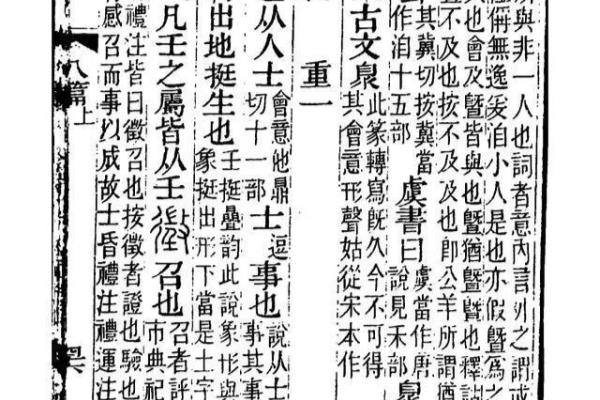 所與非一人也詞者意內言外之謂或
偁無逸爰洎小人是也亦假曁爲之
與也會及曁皆與也曁猶曁曁也釋詁
曁不及也按不及及也卽公羊所謂猶
其冀切按冀當
作洎十五部
虞書曰
虞當作唐
說見禾部
古文
此篆轉寫旣久今不可得
其會意形聲姑從宋本作
重一
也从人士
會意他鼎
切十一部
士
逗
事也
說从士
事其事
出地挺生也
壬挺疊韵此說象形與
象挺出形下當是土字
凡壬之屬皆从壬
徵
召也
召者評
市典祀
禮注皆曰徵召也按徵者證也驗也
感召而事以成故士昏禮注禮運注
八篇上